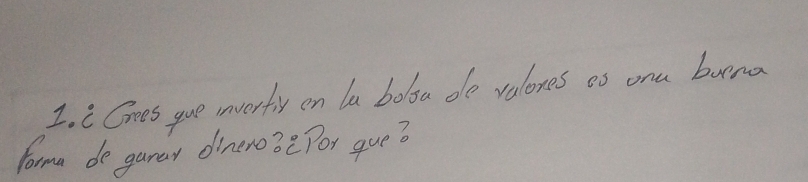 1. ¿Crees que invertir en la bolsa de valores es una buena
forma de ganar dinero? ¿Por que?